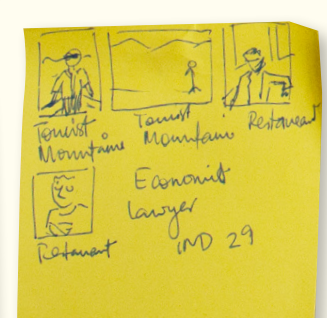 Tourist Mountains
Tourist Mountains
Restaurant
Restaurant
Economist
Lawyer
IND 29